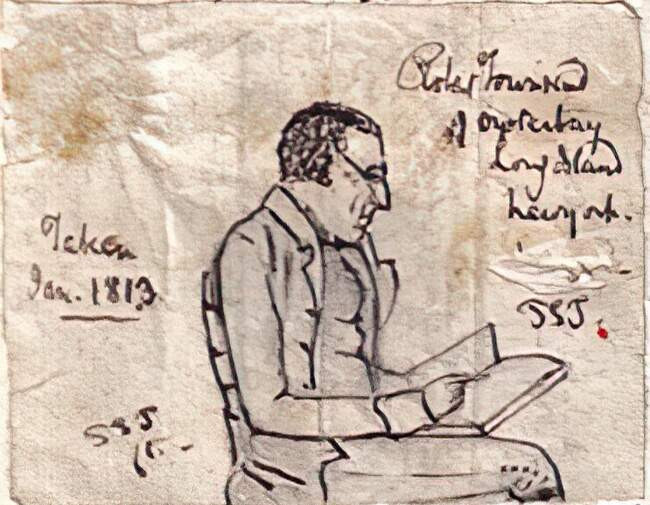 Robt Townsend
of Oysterbay
Long Island
Newyork.
Taken
Jan. 1813
SSJ.
SSJ